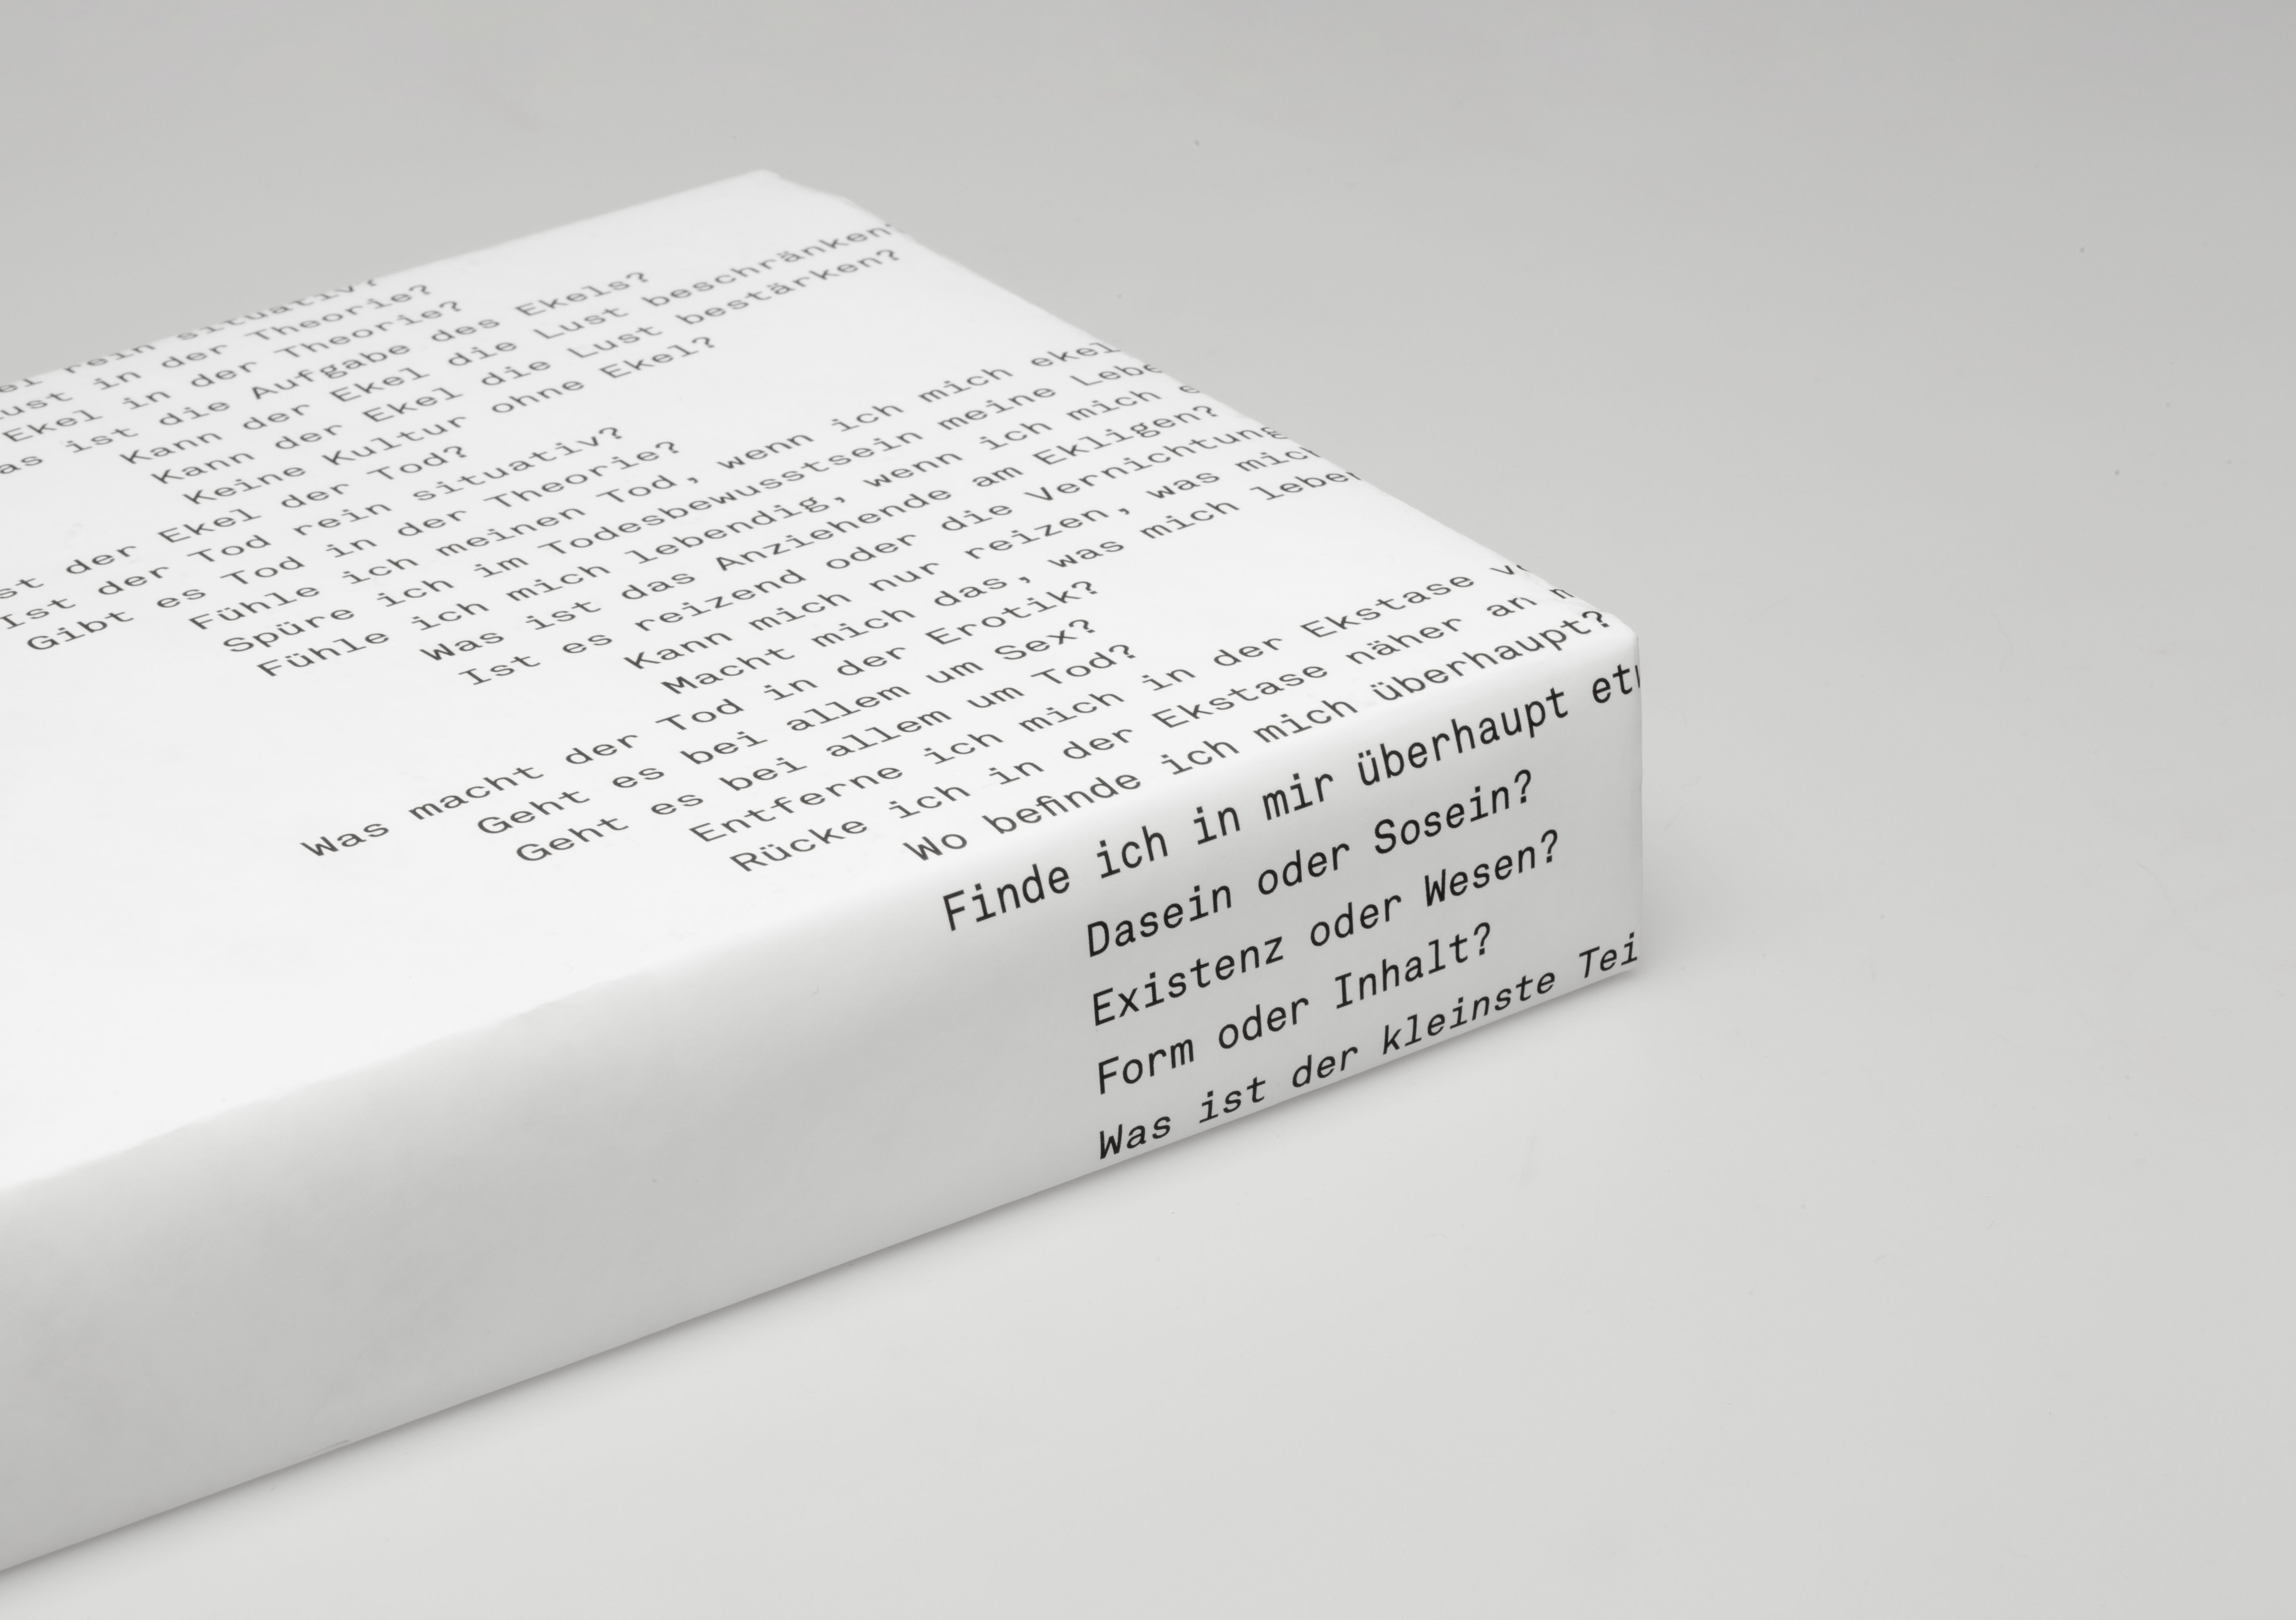 rein situativ?
in der Theorie?
Ekel in der Theorie?
ist die Aufgabe des Ekels?
Kann der Ekel die Lust beschränken?
Kann der Ekel die Lust bestärken?
Keine Kultur ohne Ekel?
der Ekel der Tod?
Ist der Tod rein situativ?
Gibt es Tod in der Theorie?
Fühle ich meinen Tod, wenn ich mich ekel
Spüre ich im Todesbewusstsein meine Lebe
Fühle ich mich lebendig, wenn ich mich e
Was ist das Anziehende am Ekligen?
Ist es reizend oder die Vernichtung
Kann mich nur reizen, was mich
Macht mich das, was mich leben
Was macht der Tod in der Erotik?
Geht es bei allem um Sex?
Geht es bei allem um Tod?
Entferne ich mich in der Ekstase vo
Rücke ich in der Ekstase näher an m
Wo befinde ich mich überhaupt?
Finde ich in mir überhaupt et
Dasein oder Sosein?
Existenz oder Wesen?
Form oder Inhalt?
Was ist der kleinste Tei